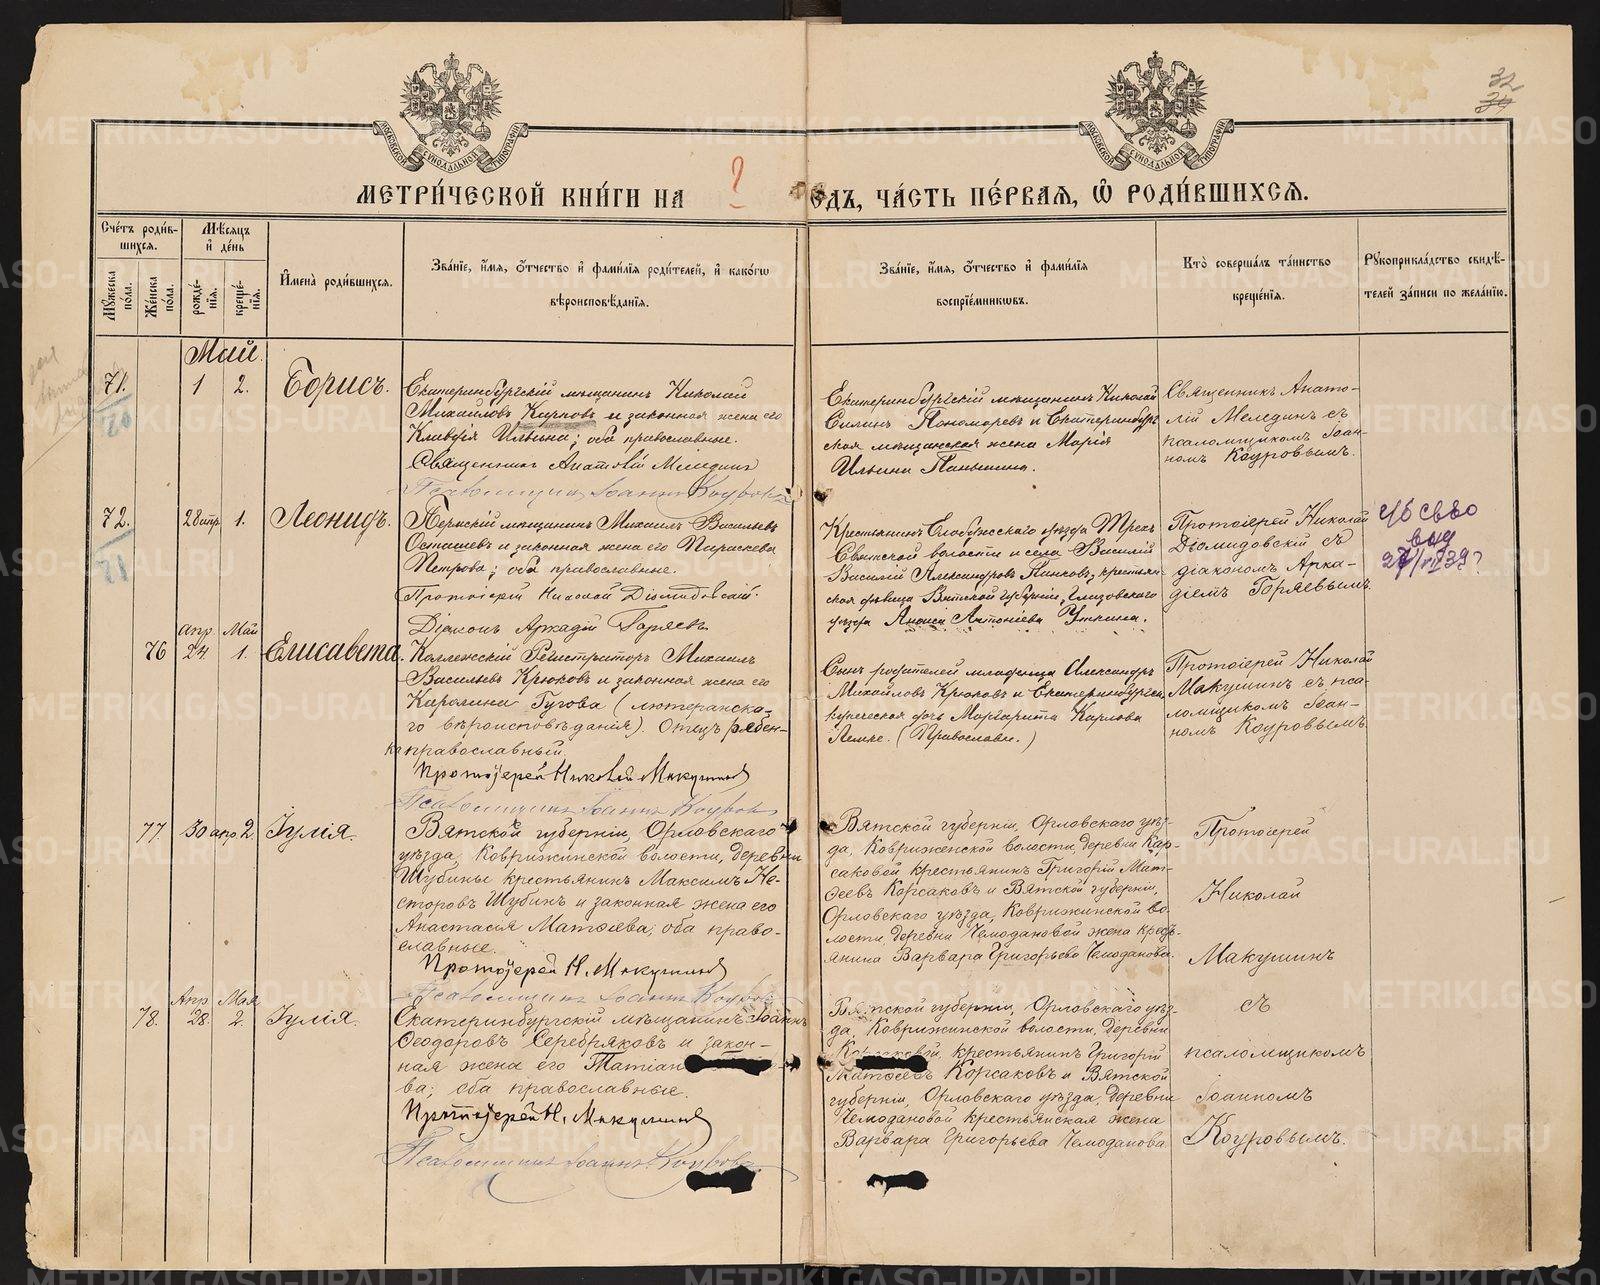 32
МОСКОВСКОЙ СУНОДАЛЬНОЙ ТИПОГРАФІИ
МОСКОВСКОЙ СУНОДАЛЬНОЙ ТИПОГРАФІИ
МЕТРИ́ЧЕСКОЙ КНИ́ГИ НА ? ГОДЪ, ЧА́СТЬ ПЕ́РВАЯ, Ѡ РОДИ́ВШИХСЯ.
Счетъ роди́вшихся.
Мꙋжеска по́ла.
Же́нска по́ла.
Мѣсяцъ и҆ де́нь
рожде́нїя.
креще́нїя.
И҆мена̀ роди́вшихся.
Зва́нїе, и҆́мя, ѻ҆́тчество и҆ фами́лїя роди́телей, и҆ како́гѡ
вѣроисповѣ́данїя.
Зва́нїе, и҆́мя, ѻ҆́тчество и҆ фами́лїя
воспрїе́мникѡвъ.
Кто̀ соверша́лъ та́инство
креще́нїя.
Рꙋкоприкла́дство свидѣ́-
телей за́писи по жела́нїю.
Май.
71.
70
1
2.
Борисъ.
Екатеринбургскій мѣщанинъ Николай
Михаиловъ Карповъ и законная жена его
Клавдія Ильина; оба православные.
Священникъ Анатолій Меледин
Псаломщикъ Іоаннъ Коуровъ
Екатеринбургскій мѣщанинъ Николай
Силинъ Пономаревъ и Екатеринбург-
ская мѣщанская жена Марія
Ильина Паньшина.
Священникъ Анато-
лій Мелединъ съ
псаломщикомъ Іоан-
номъ Коуровымъ.
72.
71
28 апр
1.
Леонидъ.
Пермскій мѣщанинъ Михаилъ Васильевъ
Осташевъ и законная жена его Параскева
Петрова; оба православные.
Протоіерей Николай Діомидовскій.
Діаконъ Аркадій Горяевъ
Крестьянинъ Слободского уѣзда Трех-
Святской волости и села Василій
Василій Александровъ Панковъ, крестьян-
ская дѣвица Вятской губерніи, Глазовского
уѣзда Анисія Антоніева Уткина.
Протоіерей Николай
Діомидовскій съ
діакономъ Арка-
діемъ Горяевымъ.
выд
76
Апр. 24.
Май 1.
Елисавета.
Коллежскій Регистраторъ Михаилъ
Васильевъ Крюковъ и законная жена его
Каролина Гугова (лютеранска-
го вѣроисповѣданія). Отецъ ребен-
ка православный.
Протоіерей Николай Макушинъ
Псаломщикъ Іоаннъ Коуровъ
Сынъ родителей младенца Александръ
Михайловъ Крюковъ и Екатеринбургск.
купеческая дочь Маргарита Карлова
Лемке. (Православн.)
Протоіерей Николай
Макушинъ съ пса-
ломщикомъ Іоан-
номъ Коуровымъ
77.
30 апр
2
Іулія.
Вятской губерніи, Орловскаго
уѣзда, Коврижинской волости, деревни
Шубины крестьянинъ Максимъ Не-
сторовъ Шубинъ и законная жена его
Анастасія Матѳеева, оба право-
славные.
Протоіерей Н. Макушинъ
Псаломщикъ Іоаннъ Коуровъ
Вятской губерніи, Орловскаго уѣз-
да, Коврижинской волости, деревни Кор-
саковой крестьянинъ Григорій Мат-
ѳеевъ Корсаковъ и Вятской губерніи,
Орловскаго уѣзда, Коврижинской во-
лости, деревни Чемодановой жена кресть-
янина Варвара Григорьева Чемоданова.
Протоіерей
Николай
Макушинъ
съ
псаломщикомъ
Іоанномъ
Коуровымъ.
78.
Апр. 28.
Мая 2.
Іулія.
Екатеринбургскій мѣщанинъ Іоаннъ
Ѳеодоровъ Серебряковъ и закон-
ная жена его Татіан
ва; оба православные.
Протоіерей Н. Макушинъ
Псаломщикъ Іоаннъ Коуровъ
Вятской губерніи, Орловскаго уѣз-
да, Коврижинской волости, деревни
Корсаковой, крестьянинъ Григорій
Матѳеевъ Корсаковъ и Вятской
губерніи, Орловскаго уѣзда, деревни
Чемодановой крестьянская жена
Варвара Григорьева Чемоданова
METRIKI.GASO-URAL.RU